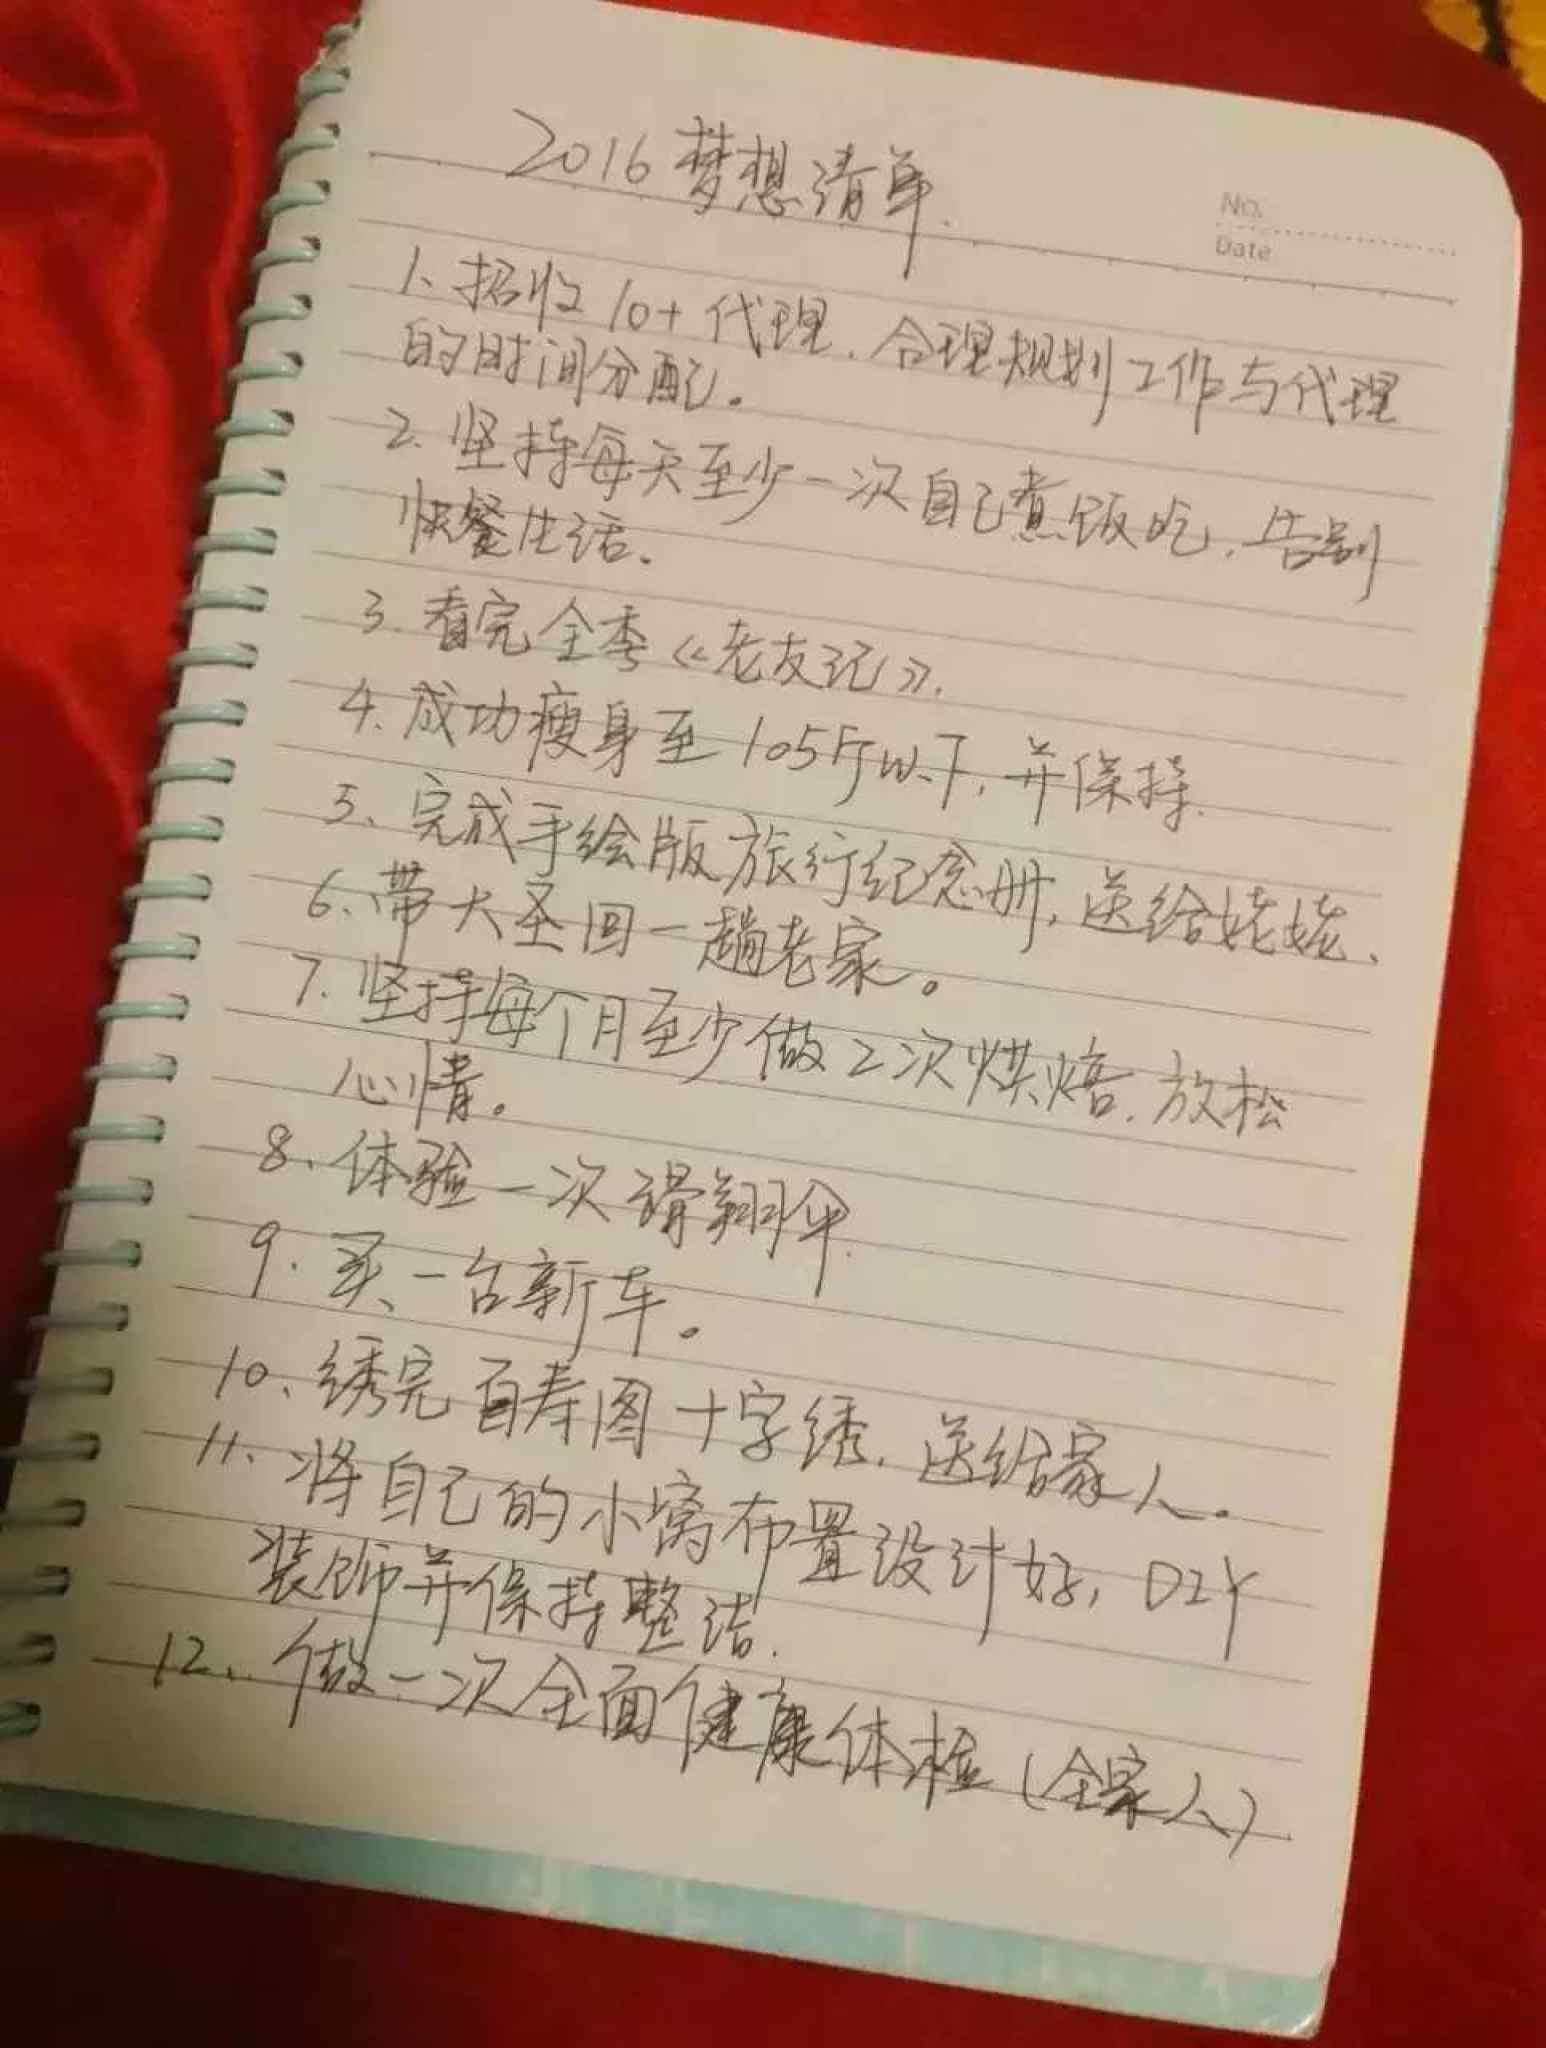 2016梦想清单.
No.
Date
1、招收10+代理，合理规划工作与代理
的时间分配。
2.坚持每天至少一次自己煮饭吃，告别
快餐生活.
3.看完全季《老友记》.
4.成功瘦身至105斤以下，并保持.
5、完成手绘版旅行纪念册，送给姥姥、
6、带大圣回一趟老家。
7.坚持每个月至少做2次烘焙.放松
心情。
8、体验一次滑翔伞.
9.买一台新车。
10、绣完百寿图十字绣，送给家人。
11、将自己的小窝布置设计好，DIY
装饰并保持整洁.
12、做一次全面健康体检(全家人)